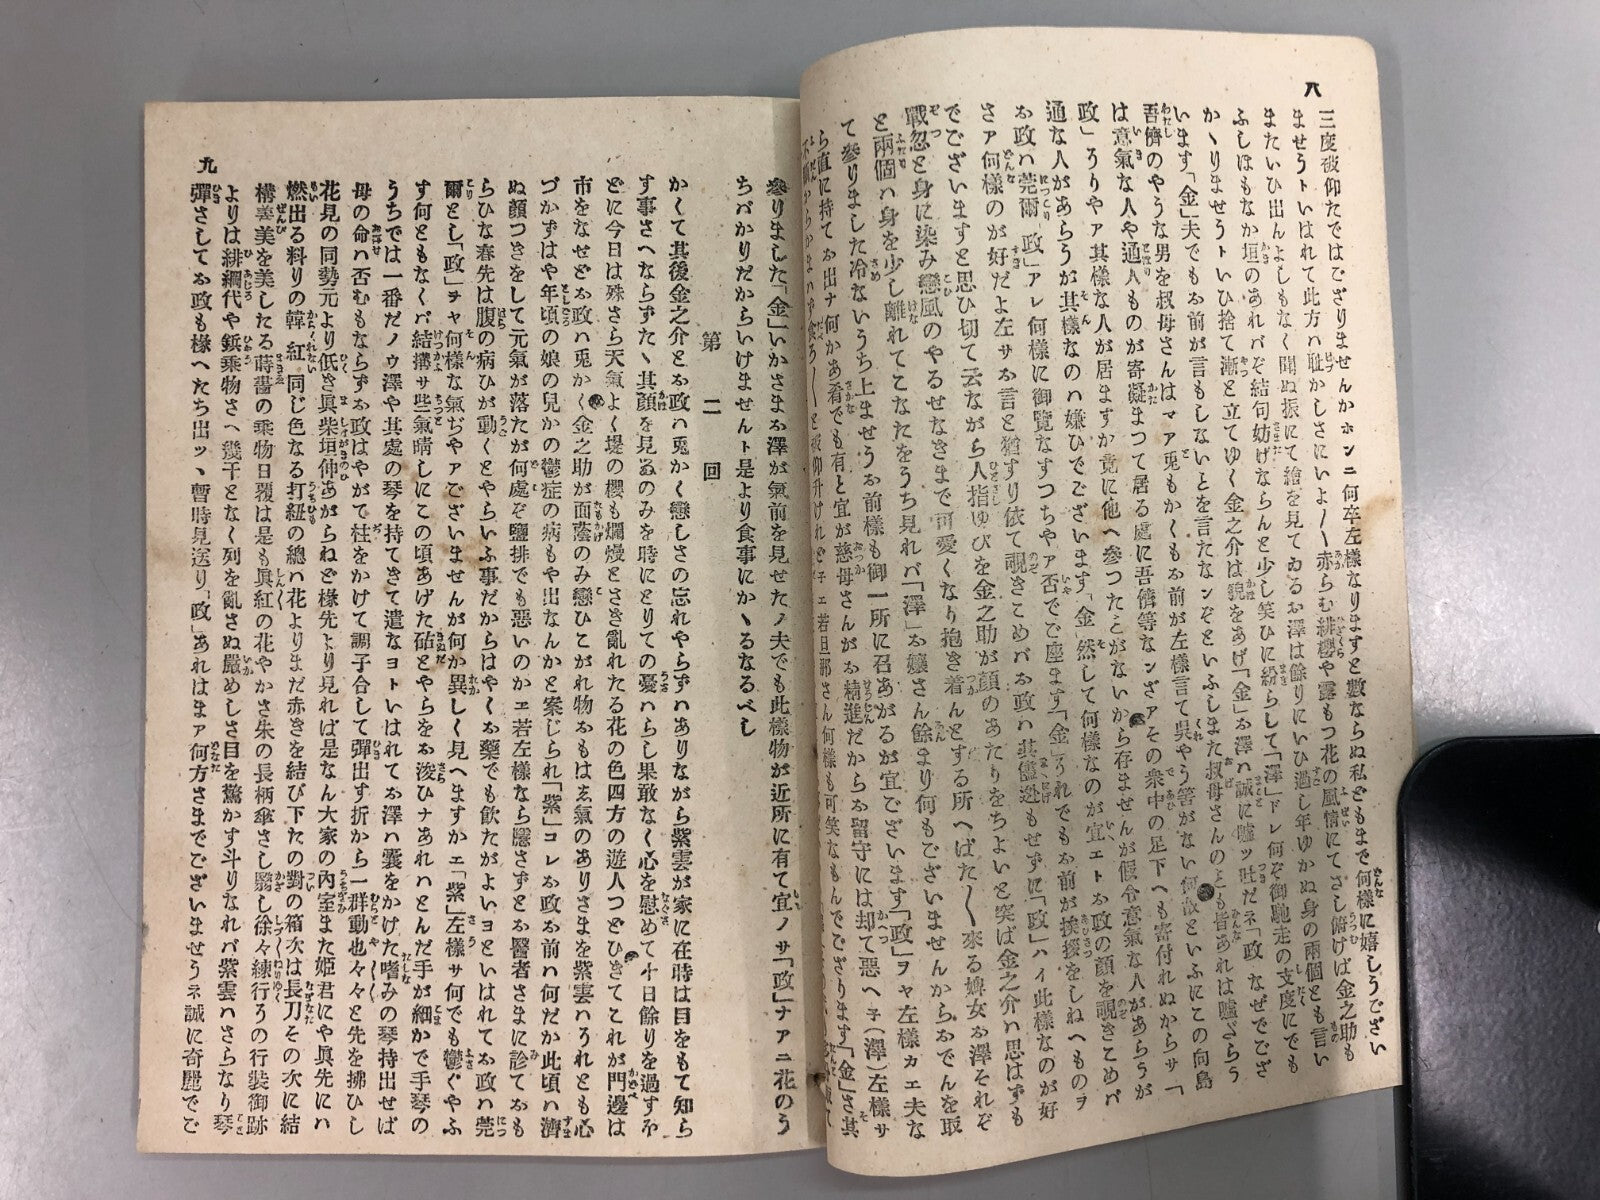 八
三度破仰たではござりませんかホンニ何卒左様なりますと數ならぬ私どもまで何様に嬉しうござい
ませうトいはれて此方ハ耻かしさにいよ〳〵赤らむ緋櫻や露もつ花の風情にてさし俯けば金之助も
またいひ出んよしもなく聞ぬ振にて繪を見てゐるお澤は餘りにいひ過し年ゆかぬ身の兩個とも言い
ふしほもなか垣のあれバぞ結句妨げならんと少し笑ひに紛らして「澤」ドレ何ぞ御馳走の支度にでも
かゝりませうトいひ捨て漸と立てゆく金之介は貌をあげ「金」お澤ハ誠に嘘ッ吐だネ「政」なぜでござ
います「金」夫でもお前が言もしないとを言たなンぞといふしまた叔母さんの上も皆あれは嘘だらう
吾儕のやうな男を叔母さんはマア兎もかくもお前が左様言て呉やう筈がない何故といふにこの向島
は意氣な人や通人ものが寄凝まつて居る處に吾儕等なンざアその衆中の足下へも寄付れぬからサ「
政」うりやア其様な人が居ますか竟に他へ參つたことがないから存ませんが假令意氣な人があらうが
通な人があらうが其様なのハ嫌ひでございます「金」然して何様なのが宜エトお政の顔を覗きこめバ
お政ハ莞爾「政」アレ何様に御覽なすつちやア否でご座ます「金」うれでもお前が挨拶をしねへものヲ
さア何様のが好だよ左サお言と猶すり依て覗きこめバお政ハ其儘迯もせずに「政」ハイ此様なのが好
でございますと思ひ切て云ながら人指ゆびを金之助が顔のあたりをちよいと突ば金之介ハ思はずも
戰忽と身に染み戀風のやるせなきまで可愛くなり抱き着んとする所へばた〳〵來る婢女お澤それぞ
と兩個ハ身を少し離れてこなたをうち見れバ「澤」お孃さん餘まり何もございませんからおでんを取
て參りました冷ないうち上ませうお前様も御一所に召あがるが宜ございます「政」ヲヤ左様カエ夫な
ら直に持てお出ナ何かあ肴でも有と宜が慈母さんがお精進だからお留守には却て惡へ子（澤）左様サ
參りました「金」いかさまお澤が氣前を見せたノ夫でも此様物が近所に有て宜ノサ「政」ナアニ花のう
ちバかりだからいけませんト是より食事にかゝるなるべし
第二回
かくて其後金之介とお政ハ兎かく戀しさの忘れやらずハありながら紫雲が家に在時は目をもて知ら
す事さへならずたゞ其顔を見るのみを時にとりての憂ハらし果敢なく心を慰めて十日餘りを過すほ
どに今日は殊さら天氣よく堤の櫻も爛熳とさき亂れたる花の色四方の遊人つどひきてこれが門邊は
市をなせどお政ハ兎かく金之助が面蔭のみ戀ひこがれ物おもはゑ氣のありさまを紫雲ハうれとも心
づかずはや年頃の娘の兒かの鬱症の病もや出なんかと案じられ「紫」コレお政お前ハ何だか此頃ハ濟
ぬ顔つきをして元氣が落たが何處ぞ鹽排でも惡いのかエ若左様なら隱さずとお醫者さまに診てお
らひな春先は腹の病ひが動くとやらいふ事だからはやくお藥でも飮たがよいヨといはれてお政ハ莞
爾とし「政」ヲヤ何様な氣ぢやアございませんが何か異しく見へますかエ「紫」左様サ何でも鬱ぐやふ
す何ともなくバ結構サ些氣晴しにこの頃あげた砧とやらをお浚ひナあれハとんだ手が細かで手琴の
うちでは一番だノウ澤や其處の琴を持てきて遣なヨトいはれてお澤ハ嚢をかけた嗜みの琴持出せば
母の命ハ否むもならずお政はやがて柱をかけて調子合して彈出す折から一群動也々々と先を拂ひし
花見の同勢元より低き眞柴垣伸あがらねど椽先より見れば是なん大家の內室また姬君にや眞先にハ
燃出る料りの韓紅同じ色なる打紐の總ハ花よりまだ赤きを結び下たの對の箱次は長刀その次に結
構善美を美したる蒔畵の乘物日覆は是も眞紅の花やかさ朱の長柄傘さし翳し徐々練行ろの行裝御跡
よりは緋綱代や鋲乘物さへ幾干となく列を亂さぬ嚴めしさ目を驚かす斗りなれバ紫雲ハさらなり琴
彈さしてお政も椽へたち出ッゝ暫時見送り「政」あれはまア何方さまでございませうネ誠に奇麗でご
九